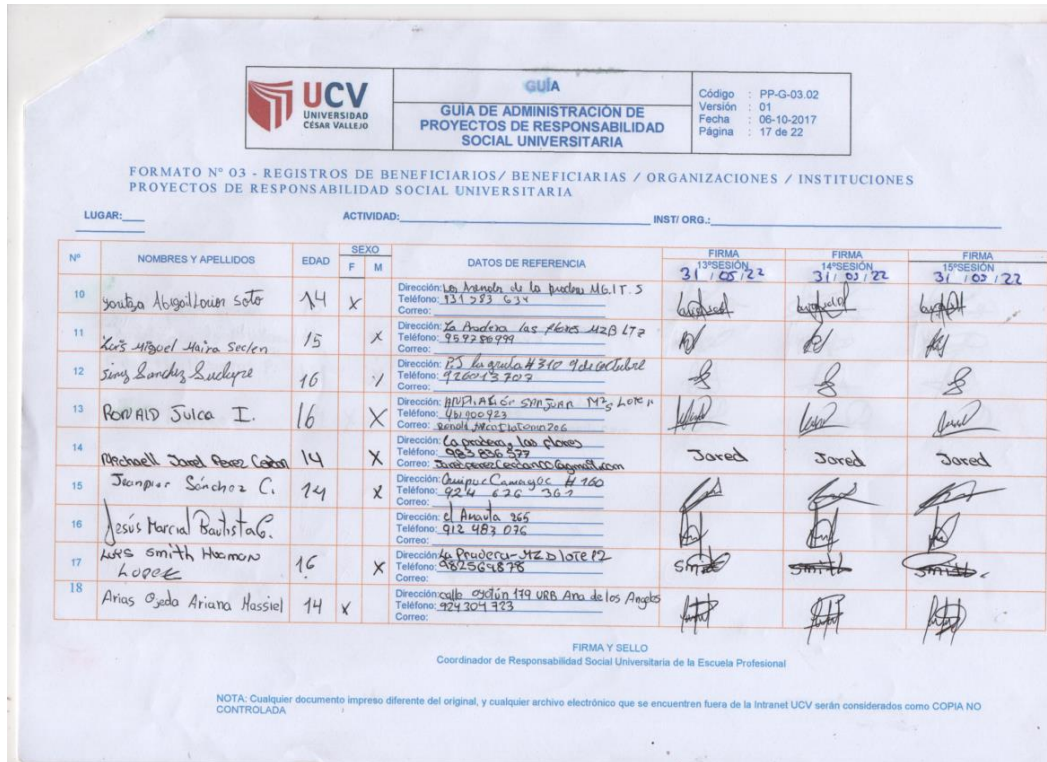 UCV
UNIVERSIDAD
CÉSAR VALLEJO
GUÍA
GUÍA DE ADMINISTRACIÓN DE
PROYECTOS DE RESPONSABILIDAD
SOCIAL UNIVERSITARIA
Código : PP-G-03.02
Versión : 01
Fecha : 06-10-2017
Página : 17 de 22
FORMATO N° 03 - REGISTROS DE BENEFICIARIOS/ BENEFICIARIAS / ORGANIZACIONES / INSTITUCIONES
PROYECTOS DE RESPONSABILIDAD SOCIAL UNIVERSITARIA
LUGAR: ACTIVIDAD: INST/ ORG.:
N° NOMBRES Y APELLIDOS EDAD SEXO F M DATOS DE REFERENCIA FIRMA 13°SESIÓN FIRMA 14°SESIÓN FIRMA 15°SESIÓN
31 / 05 / 22 31 / 05 / 22 31 / 05 / 22
10 Abigail Soto 14 X Dirección: Los de la
Teléfono: 931 583 634
Correo:
11 Luis Miguel Maira Seclen 15 X Dirección: La Pradera las flores MZB LT
Teléfono: 959786999
Correo:
12 Sanchez 16 Dirección: PJ la #310 9 de octubre
Teléfono: 926013703
Correo:
13 RONALD Julca I. 16 X Dirección: SAN JUAN
Teléfono: 961900923
Correo:
14 Michaell Jared Perez 14 X Dirección: La pradera, las flores
Teléfono: 983 836 577
Correo:
Jared Jared Jared
15 Jeanpier Sánchez C. 14 X Dirección: Quipuc Camayoc # 160
Teléfono: 924 626 361
Correo:
16 Jesús Marcial Bautista G. Dirección: el Amauta 265
Teléfono: 912 483 076
Correo:
17 Luis Smith Huaman 16 X Dirección: La Pradera - MZ D lote 12
Lopez Teléfono: 982569878
Correo:
Smith Smith Smith
18 Arias Ojeda Ariana Massiel 14 X Dirección: calle 179 URB Ana de los Angeles
Teléfono: 924304723
Correo:
FIRMA Y SELLO
Coordinador de Responsabilidad Social Universitaria de la Escuela Profesional
NOTA: Cualquier documento impreso diferente del original, y cualquier archivo electrónico que se encuentren fuera de la Intranet UCV serán considerados como COPIA NO
CONTROLADA